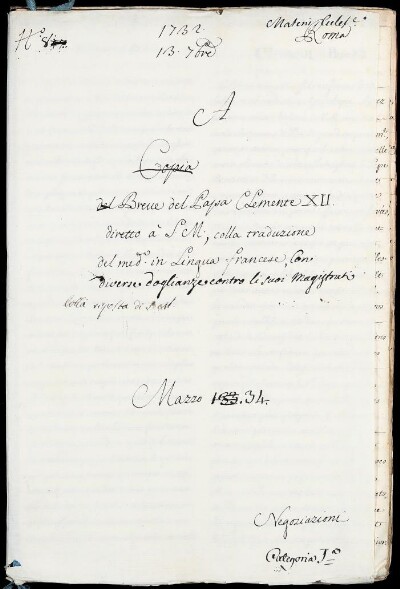 1732
13. 7bre
Materie Eccles.e
Roma
N.o
A
Copia
del Breve del Papa Clemente XII.
diretto à S. M., colla traduzione
del med.o in Lingua francese, Con
diverse doglianze contro li suoi Magistrati
Colla risposta di S. M.
Mazzo 34.
Negoziazioni
Categoria I.a